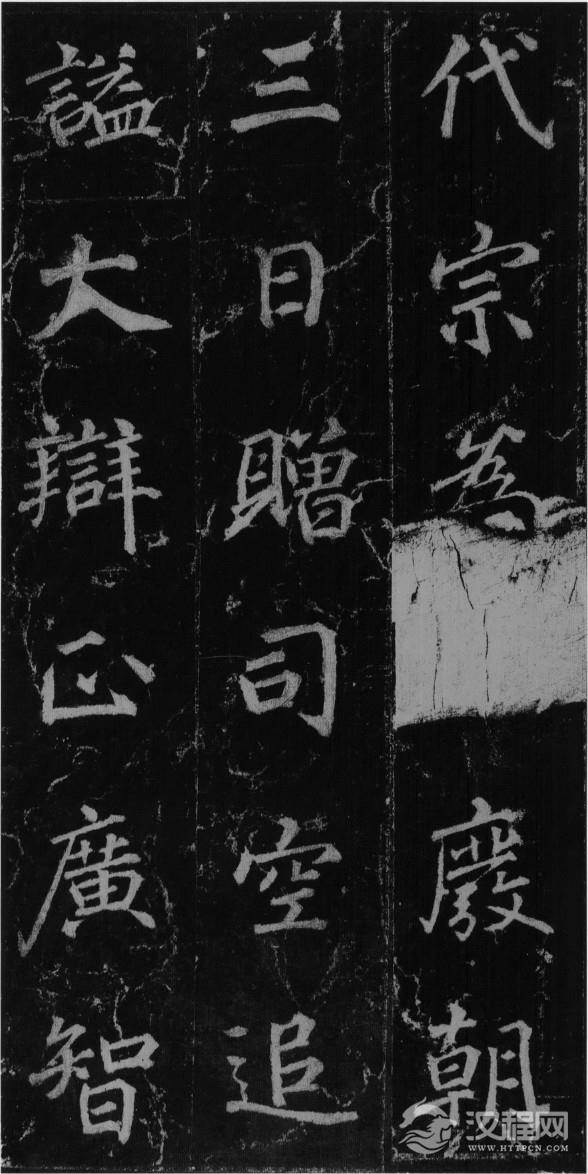 代宗為廢朝
三日贈司空追
謚大辯正廣智
汉程网
WWW.HTTPCN.COM